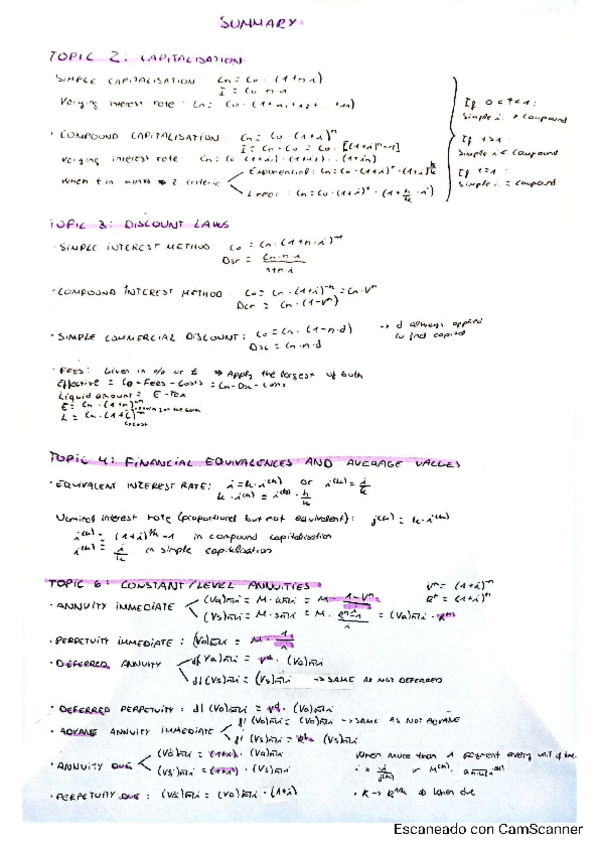 SUMMARY:
TOPIC 2: CAPITALISATION
SIMPLE CAPITALISATION: Cn = Co · (1+n·i)
I = Co · n · i
Varying interest rate: Cn = Co · (1+i1+i2+ ... +in)
If 0<t<1:
simple i. > compound
If t>1:
simple i < compound
If t=1:
simple i. = compound
· COMPOUND CAPITALISATION: Cn = Co · (1+i)^n
I = Cn - Co = Co · [(1+i)^n - 1]
Varying interest rate: Cn = Co (1+i1) · (1+i2) ... (1+in)
When t in months → 2 criteria
Exponential: Cn = Co · (1+i)^t · (1+i)^h/k
Linear: Cn = Co · (1+i)^t · (1+ h/k · i)
TOPIC 3: DISCOUNT LAWS
· SIMPLE INTEREST METHOD: Co = Cn · (1+n·i)^-1
Dsr = Cn·n·i / 1+n·i
· COMPOUND INTEREST METHOD: Co = Cn · (1+i)^-n = Cn · V^n
Dcr = Cn · (1-V^n)
· SIMPLE COMMERCIAL DISCOUNT: Co = Cn · (1-n·d) → d always applied to find capital
Dsc = Cn·n·d
· FEES: Given in % or £ → Apply the largest of both
Effective = Co - Fees - Costs = Cn - Dsc - Costs
Liquid amount = E - Tax
TOPIC 4: FINANCIAL EQUIVALENCES AND AVERAGE VALUES
· EQUIVALENT INTEREST RATE: i = k · i^(k) or i^(k) = i/k
k · i^(k) = i^(h) · h/k
Nominal interest rate (proportional but not equivalent): j^(k) = k · i^(k)
i^(k) = (1+i)^1/k - 1 in compound capitalisation
i^(k) = i/k in simple capitalisation
TOPIC 6: CONSTANT/LEVEL ANNUITIES
V^n = (1+i)^-n
R^n = (1+i)^n
· ANNUITY IMMEDIATE
(Va)n̅|i = M · an̅|i = M · 1-V^n / i
(Vs)n̅|i = M · sn̅|i = M · R^n-1 / i = (Va)n̅|i · R^n
· PERPETUITY IMMEDIATE: (Va)∞|i = M · 1/i
· DEFERRED ANNUITY
d/(Va)n̅|i = V^d · (Va)n̅|i
d/(Vs)n̅|i = (Vs)n̅|i → SAME AS NOT DEFERRED
· DEFERRED PERPETUITY: d/(Va)∞|i = V^d · (Va)∞|i
· ADVANCE ANNUITY IMMEDIATE
(Va)n̅|i = (Va)n̅|i → SAME AS NOT ADVANCE
(Vs)n̅|i = R^h · (Vs)n̅|i
· ANNUITY DUE
(Vä)n̅|i = (1+i) · (Va)n̅|i
(Vs̈)n̅|i = (1+i) · (Vs)n̅|i
When more than 1 payment every unit of time
· PERPETUITY DUE: (Vä)∞|i = (Va)∞|i · (1+i)
Escaneado con CamScanner